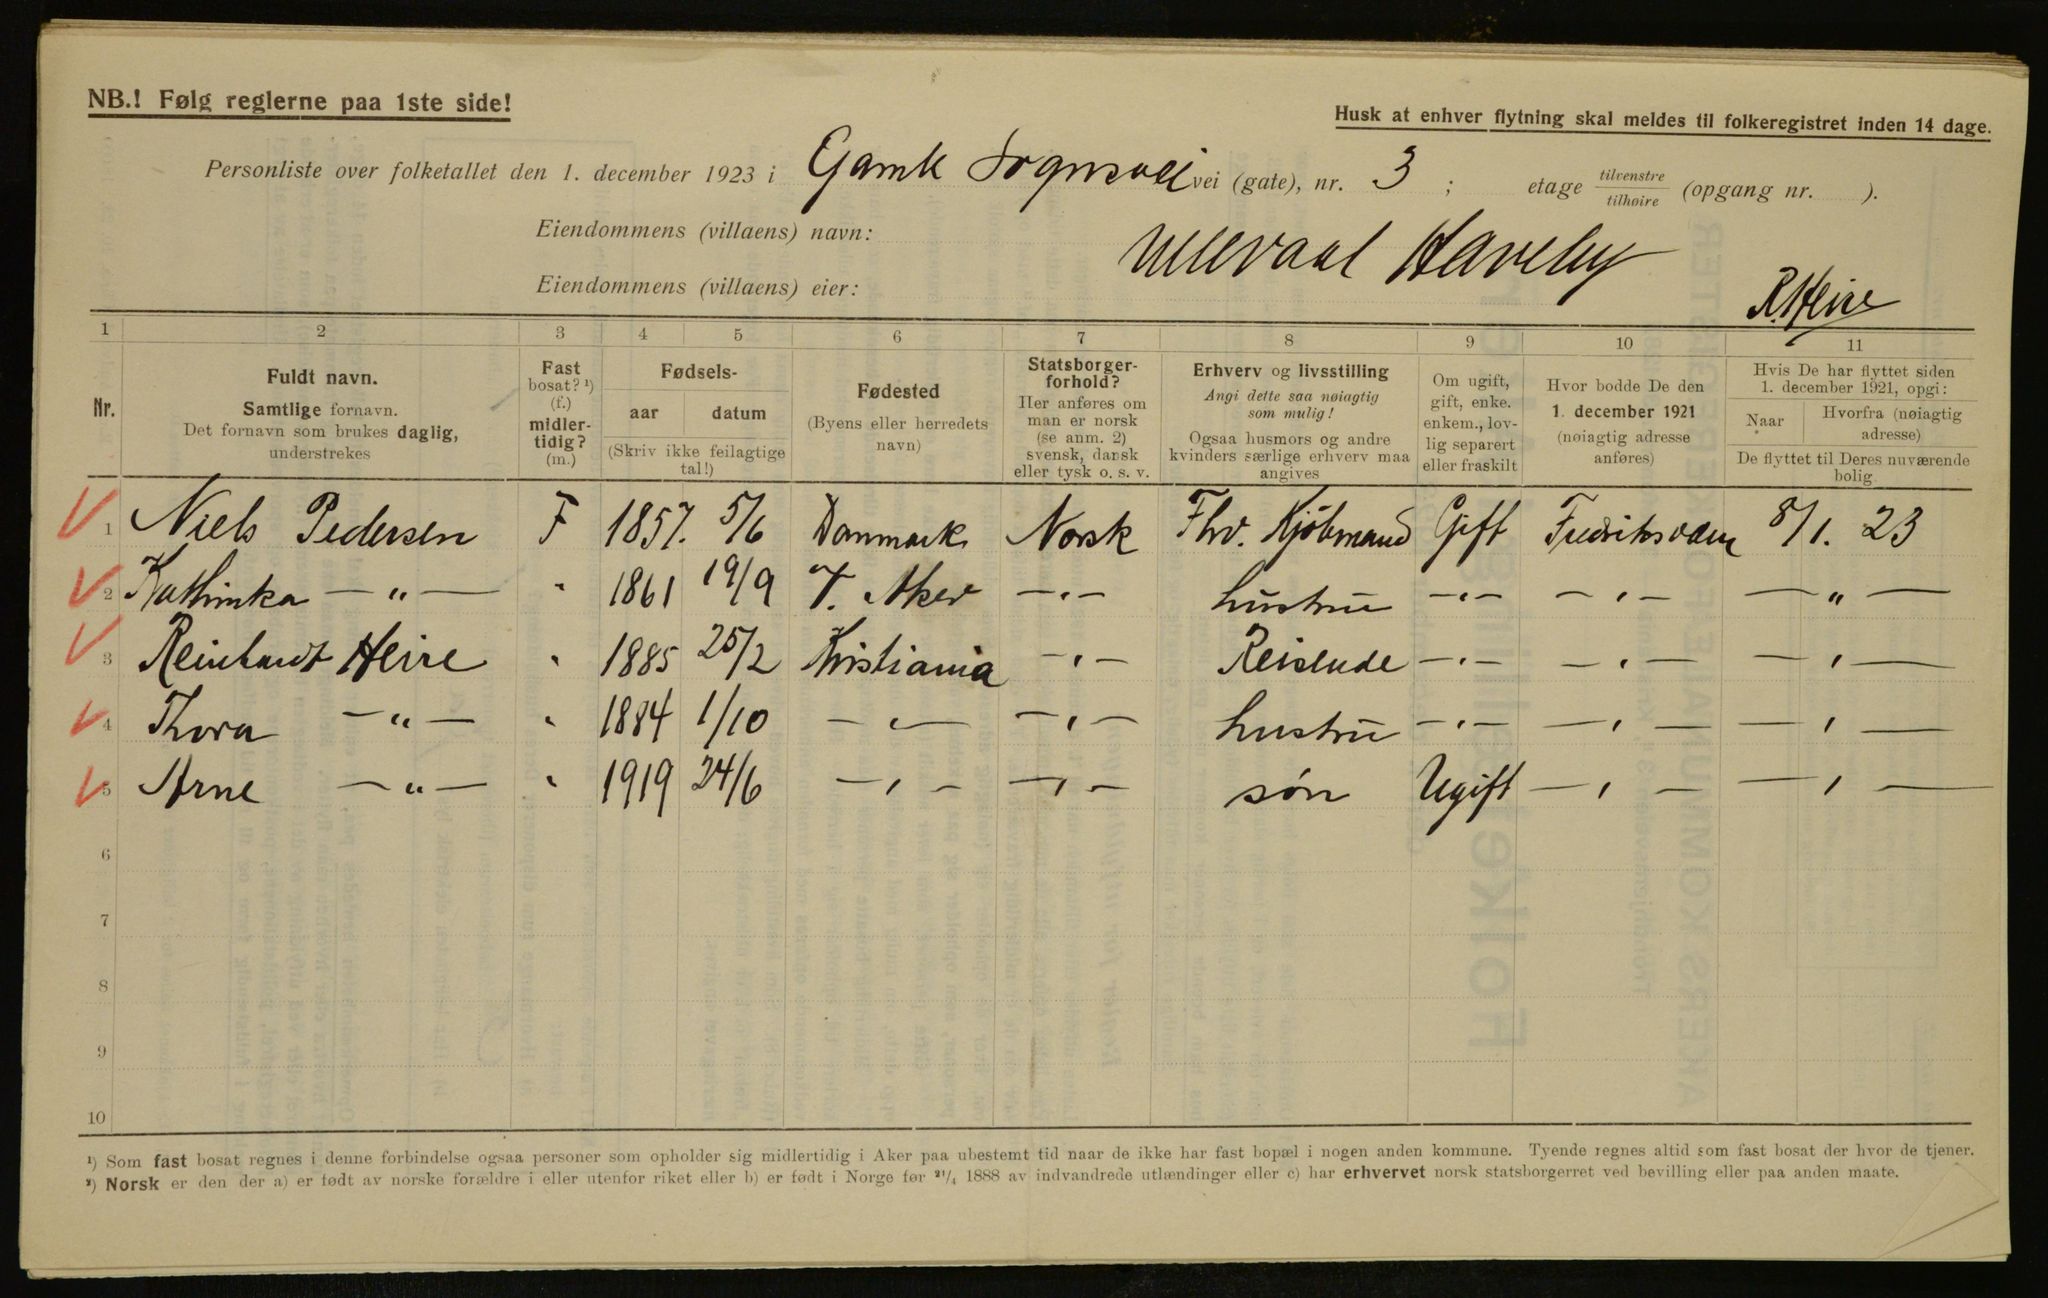 NB.! Følg reglerne paa 1ste side!
Husk at enhver flytning skal meldes til folkeregistret inden 14 dage.
Personliste over folketallet den 1. december 1923 i Gamle Sognsvei vei (gate), nr. 3 ; etage tilvenstre/tilhøire (opgang nr. ).
Eiendommens (villaens) navn:
Ullevaal Haveby
Eiendommens (villaens) eier:
R. Heire
1 2 3 4 5 6 7 8 9 10 11
Nr.
Fuldt navn.
Samtlige fornavn.
Det fornavn som brukes daglig,
understrekes
Fast
bosat? ¹)
(f.)
midler-
tidig?
(m.)
Fødsels-
aar datum
(Skriv ikke feilagtige
tal!)
Fødested
(Byens eller herredets
navn)
Statsborger-
forhold?
Her anføres om
man er norsk
(se anm. 2)
svensk, dansk
eller tysk o. s. v.
Erhverv og livsstilling
Angi dette saa nøiagtig
som mulig!
Ogsaa husmors og andre
kvinders særlige erhverv maa
angives
Om ugift,
gift, enke.
enkem., lov-
lig separert
eller fraskilt
Hvor bodde De den
1. december 1921
(nøiagtig adresse
anføres)
Hvis De har flyttet siden
1. december 1921, opgi:
Naar
Hvorfra (nøiagtig
adresse)
De flyttet til Deres nuværende
bolig
1 Niels Pedersen F 1857. 5/6 Danmark Norsk Fhv. Kjöbmand Gift 8/1. 23
2 Kathinka —„— „ 1861 19/9 V. Aker —„— hustru —„— —„— —„—
3 Reinhardt Heire „ 1885 25/2 Kristiania —„— Reisende —„— —„— —„—
4 Thora —„— „ 1884 1/10 —„— —„— hustru —„— —„— —„—
5 Arne —„— „ 1919 24/6 —„— —„— søn Ugift —„— —„—
6
7
8
9
10
¹) Som fast bosat regnes i denne forbindelse ogsaa personer som opholder sig midlertidig i Aker paa ubestemt tid naar de ikke har fast bopæl i nogen anden kommune. Tyende regnes altid som fast bosat der hvor de tjener.
²) Norsk er den der a) er født av norske forældre i eller utenfor riket eller b) er født i Norge før 21/4 1888 av indvandrede utlændinger eller c) har erhvervet norsk statsborgerret ved bevilling eller paa anden maate.